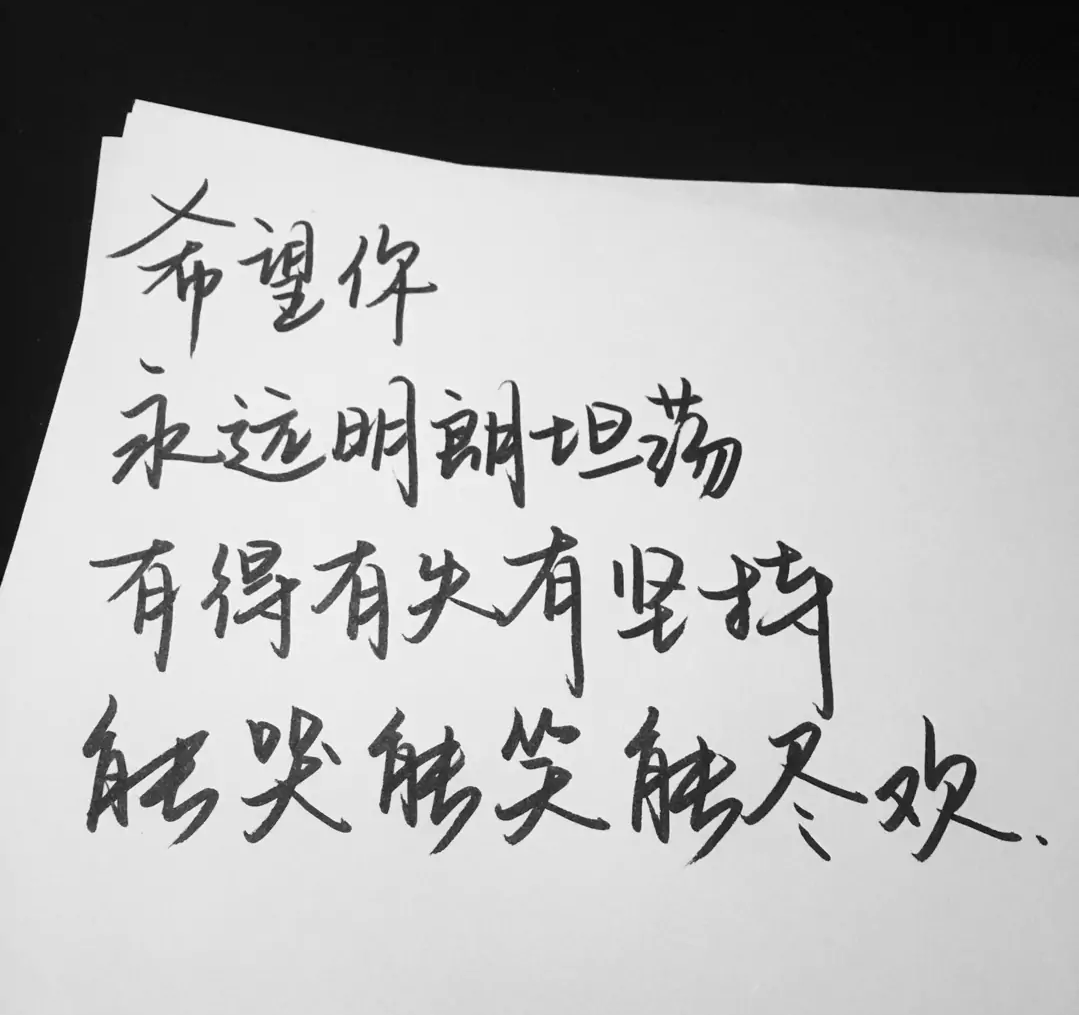 希望你
永远明朗坦荡
有得有失有坚持
能哭能笑能尽欢.